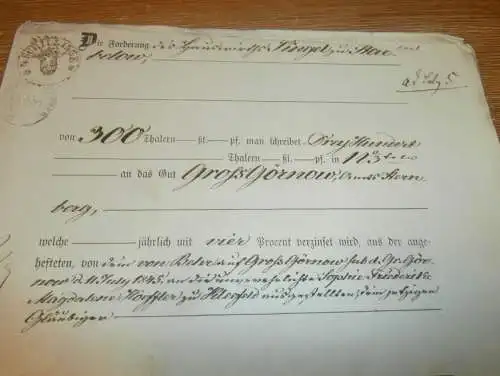 Die Forderung des Hauswirths Tingel zu Kar-
betow,
von 300 Thalern — ßl. — pf. man schreibet Drey Hundert
Thaler — ßl. — pf. in N 2/3
an das Gut Groß Görnow, Amts Stern
berg,
welche — jährlich mit vier Procent verzinset wird, aus der ange-
hefteten, von dem von Behr auf Groß Görnow sub d. Gr. Gör-
now d. 11 July 1845 an die unverehelichte Sophie Friederike
Magdalene zu ausgestellten, dem jetzigen
Gläubiger